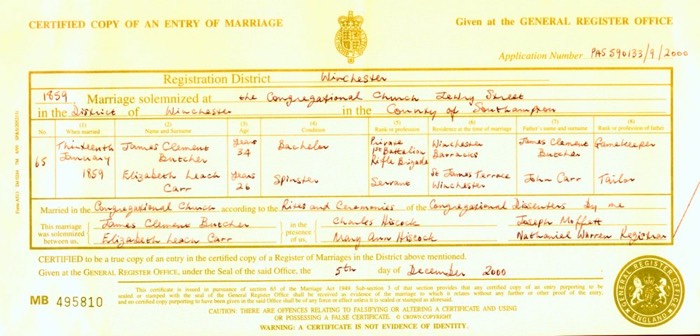 CERTIFIED COPY OF AN ENTRY OF MARRIAGE
Given at the GENERAL REGISTER OFFICE
Application Number PAS 590133/9/2000
Registration District Winchester
1859 Marriage solemnized at the Congregational Church Jewry Street
in the District of Winchester in the County of Southampton
(1) (2) (3) (4) (5) (6) (7) (8)
No. When married Name and Surname Age Condition Rank or profession Residence at the time of marriage Father's name and surname Rank or profession of father
65 Thirteenth January 1859 James Clement Butcher 34 years Bachelor Private 1st Battalion Rifle Brigade Winchester Barracks James Clement Butcher Gamekeeper
Elizabeth Leach Carr 26 years Spinster Servant St James Terrace Winchester John Carr Tailor
Married in the Congregational Church according to the Rites and Ceremonies of the Congregational Dissenters by me
This marriage was solemnized between us, James Clement Butcher Elizabeth Leach Carr in the presence of us, Charles Hiscock Mary Ann Hiscock Joseph Moffett Nathaniel Warren Registrar
CERTIFIED to be a true copy of an entry in the certified copy of a Register of Marriages in the District above mentioned.
Given at the GENERAL REGISTER OFFICE, under the Seal of the said Office, the 5th day of December 2000
MB 495810
This certificate is issued in pursuance of section 65 of the Marriage Act 1949. Sub-section 3 of that section provides that any certified copy of an entry purporting to be
sealed or stamped with the seal of the General Register Office shall be received as evidence of the marriage to which it relates without any further or other proof of the entry,
and no certified copy purporting to have been given in the said Office shall be of any force or effect unless it is sealed or stamped as aforesaid.
CAUTION: THERE ARE OFFENCES RELATING TO FALSIFYING OR ALTERING A CERTIFICATE AND USING
OR POSSESSING A FALSE CERTIFICATE. © CROWN COPYRIGHT
WARNING: A CERTIFICATE IS NOT EVIDENCE OF IDENTITY.
GENERAL REGISTER OFFICE
ENGLAND